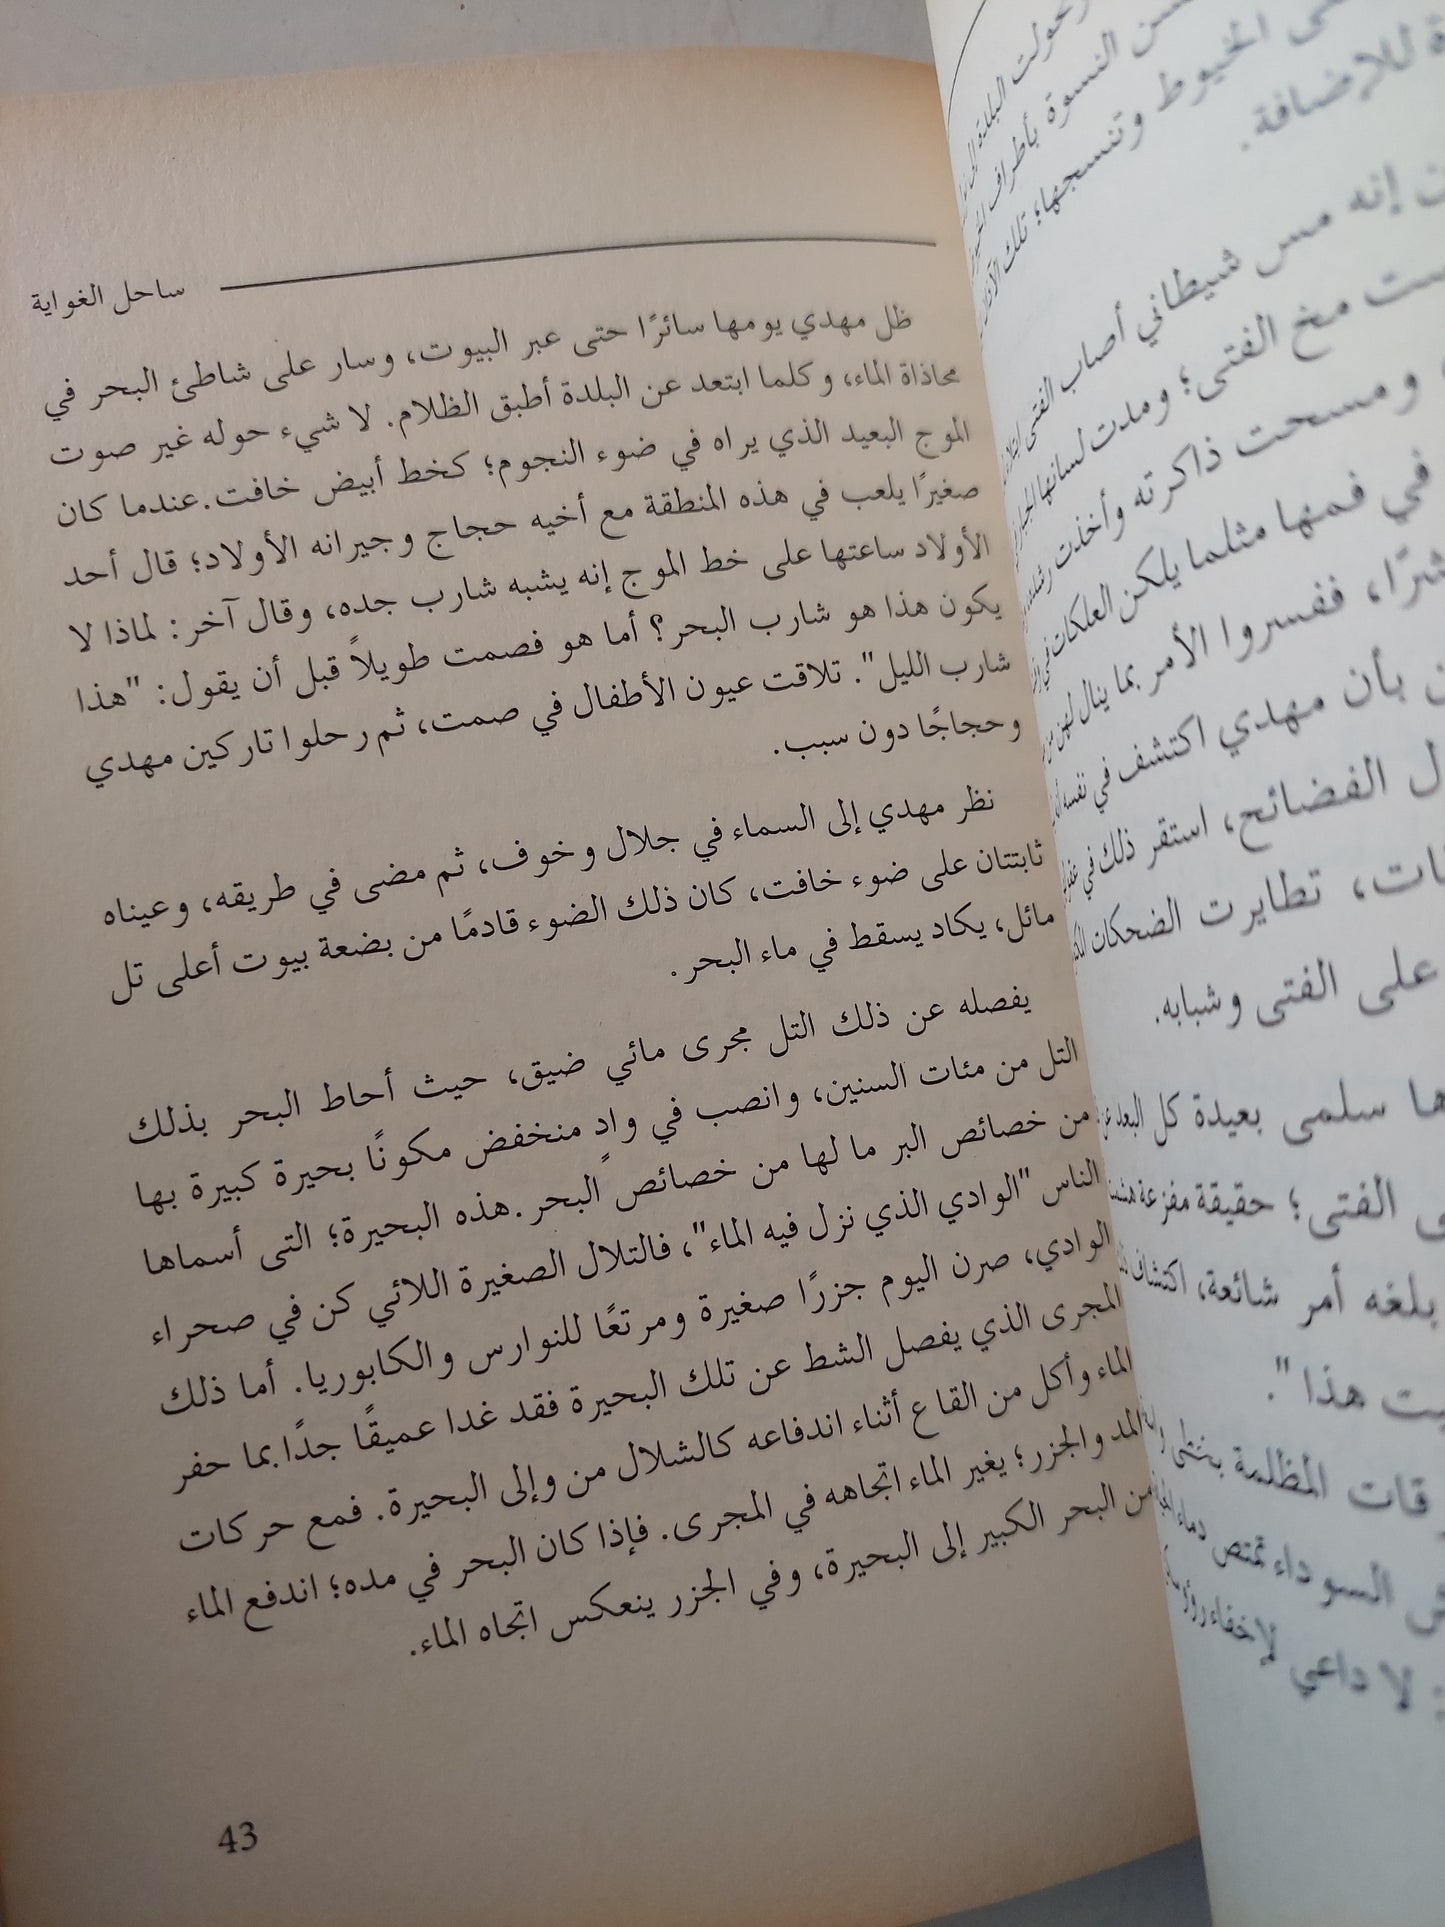 وتحولت البلدة إلى
النسوة بأطراف
الخيوط وتنسجها؛ تلك
للإضافة.
إنه مس شيطاني أصاب الفتى
مخ الفتى؛ ومدت لسانها
ومسحت ذاكرته وأخذت
في فمها مثلما يلكن العلكات في
ففسروا الأمر بما ينال لهن من
بأن مهدي اكتشف في نفسه
الفضائح، استقر ذلك في
تطايرت الضحكات
على الفتى وشبابه.
سلمى بعيدة كل البعد عن
الفتى؛ حقيقة مفزعة
بلغه أمر شائعة، اكتشاف
هذا".
المظلمة بخطى
السوداء تمتص دماء
لا داعي لإخفاء
ساحل الغواية
ظل مهدي يومها سائرًا حتى عبر البيوت، وسار على شاطئ البحر في
محاذاة الماء، وكلما ابتعد عن البلدة أطبق الظلام. لا شيء حوله غير صوت
الموج البعيد الذي يراه في ضوء النجوم؛ كخط أبيض خافت.عندما كان
صغيرًا يلعب في هذه المنطقة مع أخيه حجاج وجيرانه الأولاد؛ قال أحد
الأولاد ساعتها على خط الموج إنه يشبه شارب جده، وقال آخر: لماذا لا
يكون هذا هو شارب البحر؟ أما هو فصمت طويلاً قبل أن يقول: "هذا
شارب الليل". تلاقت عيون الأطفال في صمت، ثم رحلوا تاركين مهدي
وحجاجًا دون سبب.
نظر مهدي إلى السماء في جلال وخوف، ثم مضى في طريقه، وعيناه
ثابتتان على ضوء خافت، كان ذلك الضوء قادمًا من بضعة بيوت أعلى تل
مائل، يكاد يسقط في ماء البحر.
يفصله عن ذلك التل مجرى مائي ضيق، حيث أحاط البحر بذلك
التل من مئات السنين، وانصب في وادٍ منخفض مكونًا بحيرة كبيرة بها
من خصائص البر ما لها من خصائص البحر.هذه البحيرة؛ التى أسماها
الناس "الوادي الذي نزل فيه الماء"، فالتلال الصغيرة اللائي كن في صحراء
الوادي، صرن اليوم جزرًا صغيرة ومرتعًا للنوارس والكابوريا. أما ذلك
المجرى الذي يفصل الشط عن تلك البحيرة فقد غدا عميقًا جدًا.بما حفر
الماء وأكل من القاع أثناء اندفاعه كالشلال من وإلى البحيرة. فمع حركات
المد والجزر؛ يغير الماء اتجاهه في المجرى. فإذا كان البحر في مده؛ اندفع الماء
من البحر الكبير إلى البحيرة، وفي الجزر ينعكس اتجاه الماء.
43